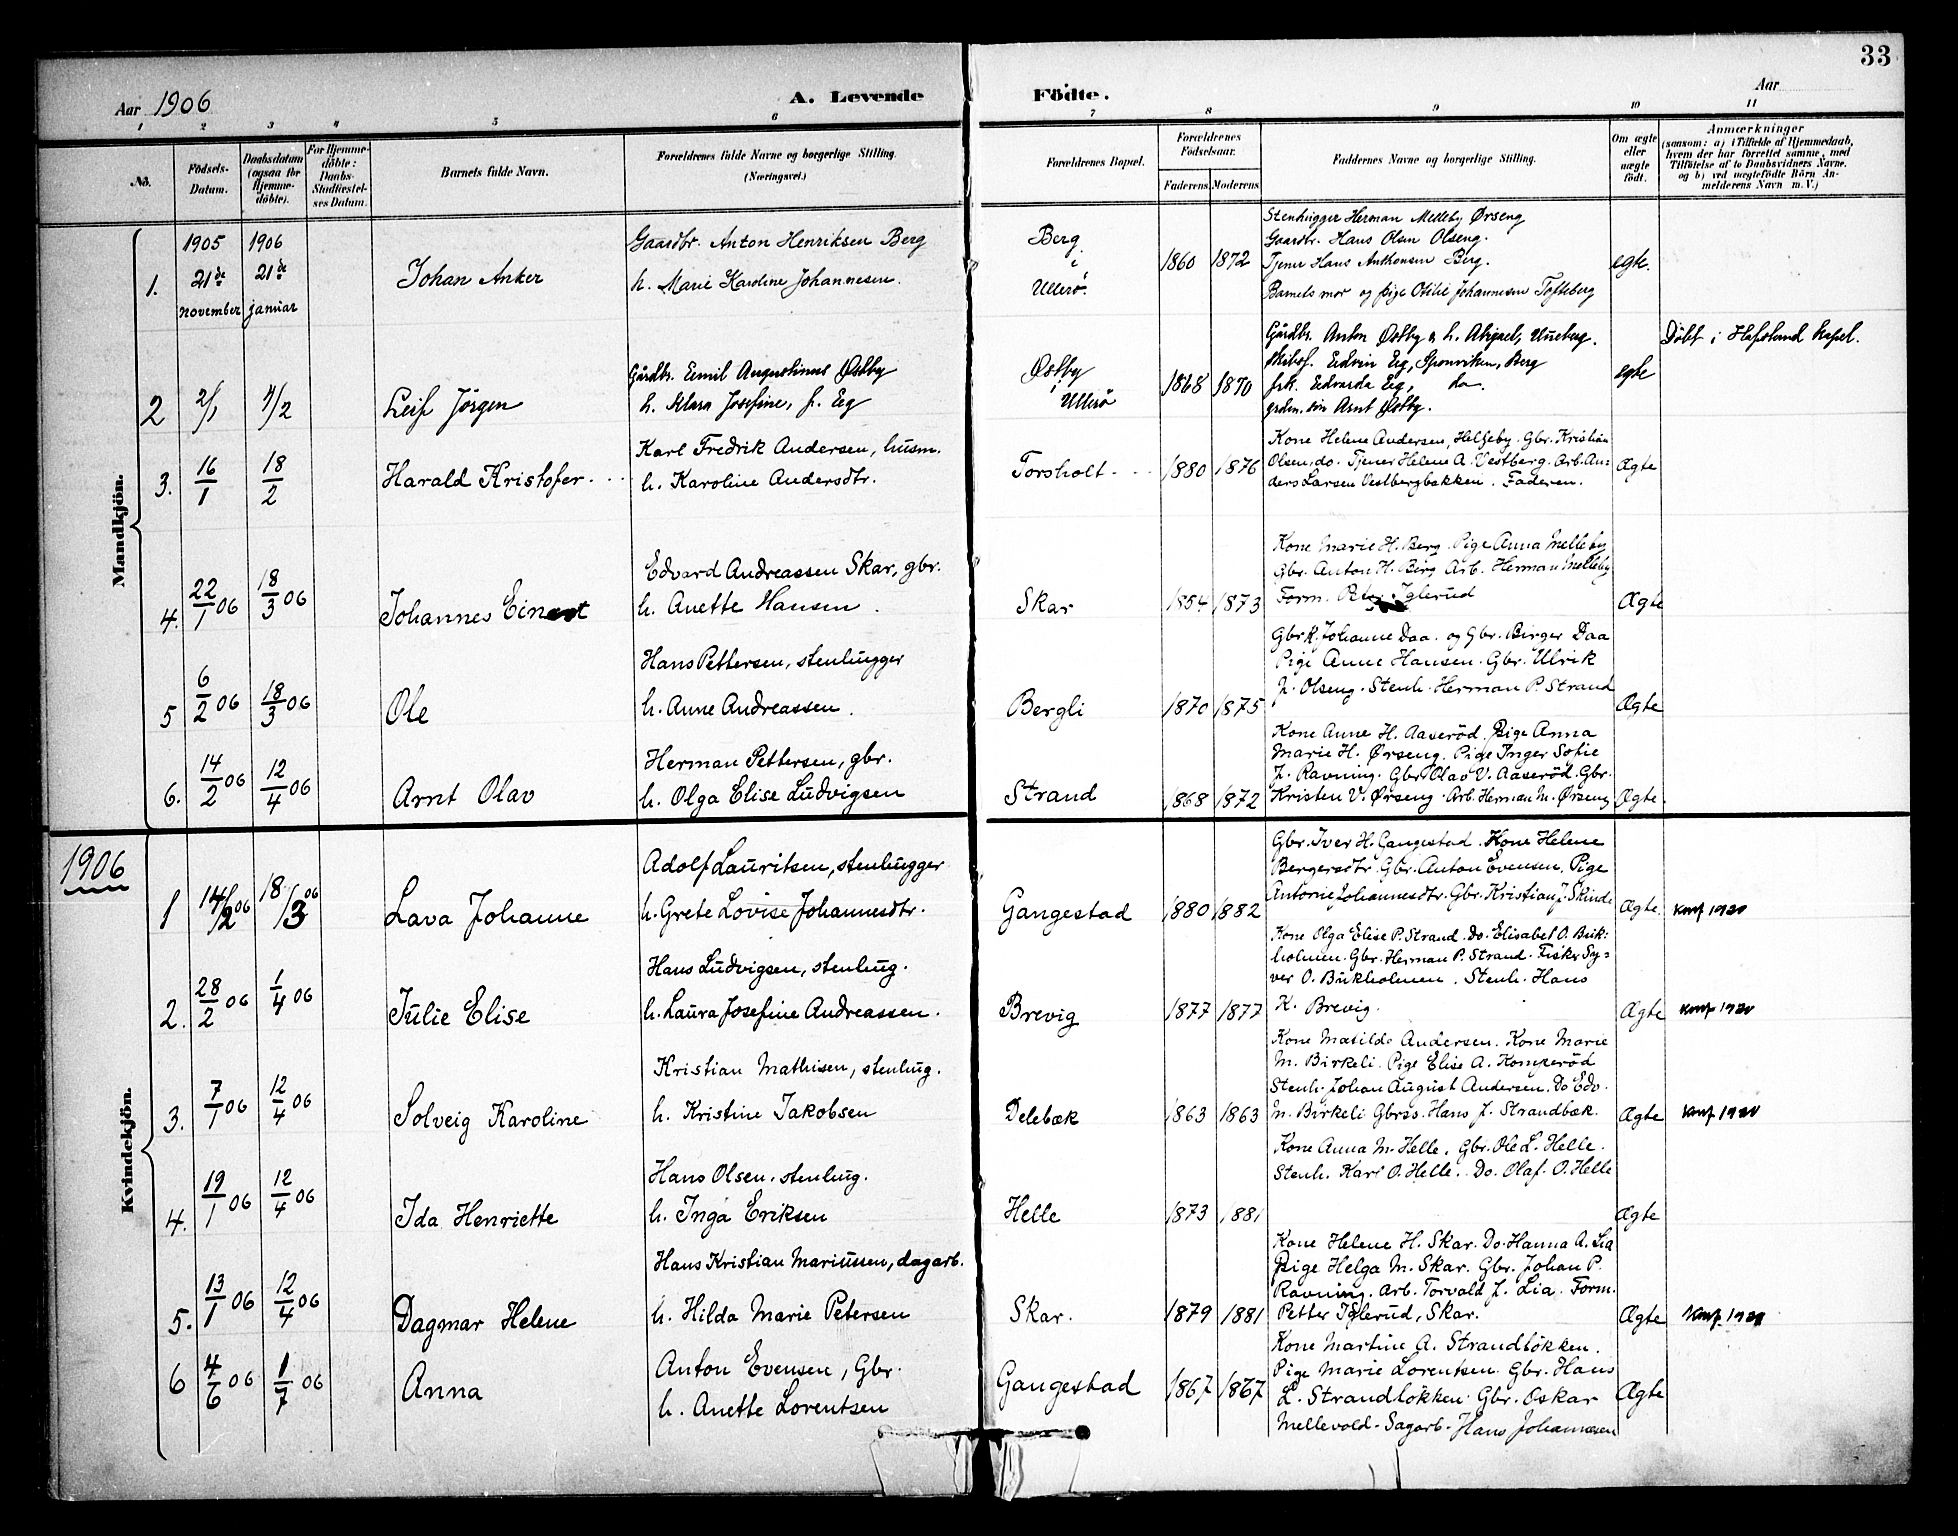 33
Aar 1906
A. Levende Födte.
Aar
1 2 3 4 5 6 7 8 9 10 11
No.
Födsels-Datum.
Daabsdatum (ogsaa for Hjemme-döbte).
For Hjemme-döbte: Daabs-Stadfæstel-ses Datum.
Barnets fulde Navn.
Forældrenes fulde Navne og borgerlige Stilling. (Næringsvei.)
Forældrenes Bopæl.
Forældrenes Födselsaar.
Faderens. Moderens.
Faddernes Navne og borgerlige Stilling.
Om ægte eller uægte födt.
Anmærkninger
(saasom: a) i Tilfælde af Hjemmedaab, hvem der har forrettet samme, med Tilföielse af to Daabsvidners Navne. og b) ved uægtefödte Börn An-melderens Navn m. V.)
Mandkjön.
1. 1905 21de november
1906 21de januar
Johan Anker
Gaardbr. Anton Henriksen Berg
h. Marie Karoline Johannesen.
Berg i Ullerö.
1860 1872
Stenhugger Herman Melleby Ørseng
Gaardbr. Hans Olsen Olseng.
Tjener Hans Anthonsen Berg.
Barnets mor og pige Otilie Johannesen Tofteberg
egte.
2 2/1 4/2
Leif Jörgen
Gårdbr. Emil Augustinus Østby
h. Klara Josefine, f. Eeg
Østby i Ullerö
1868 1870
Gårdbr. Anton Østby & h. Abigael,
Eidvin Eeg, Sponviken, Berg
frk. Edvarda Eeg, do.
grdm. sön Arnt Østby.
egte
Döbt i Hafslund kapel.
3. 16/1 18/2
Harald Kristofer.
Karl Fredrik Andersen, husm.
h. Karoline Andersdtr.
Torsholt
1880 1876
Kone Helene Andersen, Helgeby. Gbr. Kristian
Olsen, do. Tjener Helene A. Vestberg. Arb. An-
ders Larsen Vestbergbakken. Faderen.
Ægte
4. 22/1 06 18/3 06
Johannes
Edvard Andreassen Skar, gbr.
h. Anette Hansen.
Skar
1854 1873
Kone Marie H. Berg. Pige Anna Melleby
Gbr. Anton H. Berg Arb. Herman Melleby
Form. Peter Iglerud
Ægte
5 6/2 06 18/3 06
Ole
Hans Pettersen, stenhugger
h. Anne Andreassen.
Bergli
1870 1875
Gbr.k. Johanne Daa. og Gbr. Birger Daa
Pige Anne Hansen. Gbr. Ulrik
J. Olseng. Stenh. Herman P. Strand
Ægte
6. 14/2 06 12/4 06
Arnt Olav
Herman Pettersen, gbr.
h. Olga Elise Ludvigsen
Strand
1868 1872
Kone Anne H. Aaseröd. Pige Anna
Marie H. Ørseng. Pige Inger Sofie
J. Ravning. Gbr. Olav V. Aaseröd. Gbr.
Kristen V. Ørseng. Arb. Herman M. Ørseng
Ægte.
1906
Kvindekjön.
1 14/2 06 18/3 06
Lava Johanne
Adolf Lauritsen, stenhugger
h. Grete Lovise Johannesdtr.
Gangestad
1880 1882
Gbr. Iver H. Gangestad. Kone Helene
Bergersdtr. Gbr. Anton Evensen. Pige
Antorne Johannesdtr. Gbr. Kristian J. Skinde
Ægte.
Konf 1920
2. 28/2 06 1/4 06
Julie Elise
Hans Ludvigsen, stenhug.
h. Laura Josefine Andreassen.
Brevig
1877 1877
Kone Olga Elise P. Strand. Do. Elisabet O. Buk-
holmen. Gbr. Herman P. Strand. Fisker Sy-
ver O. Bukholmen. Stenh. Hans
K. Brevig.
Ægte
Konf 1920
3. 7/1 06 12/4 06
Solveig Karoline
Kristian Mathisen, stenhug.
h. Kristine Jakobsen
Delebæk
1863 1863
Kone Matilde Andersen. Kone Marie
M. Birkeli. Pige Elise A. Kompperöd
Stenh. Johan August Andersen. Do Edv.
M. Birkeli Gbrss. Hans J. Strandbæk.
Ægte
Konf 1920
4. 19/1 06 12/4 06
Ida Henriette
Hans Olsen. stenhug.
h. Inga Eriksen
Helle
1873 1881
Kone Anna M. Helle. Gbr. Ole L. Helle.
Stenh. Karl O. Helle. Do. Olaf. O. Helle
Ægte
5. 13/1 06 12/4 06
Dagmar Helene
Hans Kristian Mariussen, dagarb.
h. Hilda Marie Petersen
Skar.
1879 1881
Kone Helene H. Skar. Do. Hanna A. Lia
Pige Helga M. Skar. Gbr. Johan P.
Ravning. Arb. Torvald J. Lia. Form.
Petter Iglerud, Skar.
Ægte
Konf. 1921
6 4/6 06 1/7 06
Anna
Anton Evensen, Gbr.
h. Anette Lorentsen
Gangestad
1867 1867
Kone Martine A. Strandlökken.
Pige Marie Lorentsen. Gbr. Hans
L. Strandlökken. Gbr. Oskar
Mellevold - Sagarb. Hans Johannesen
Ægte